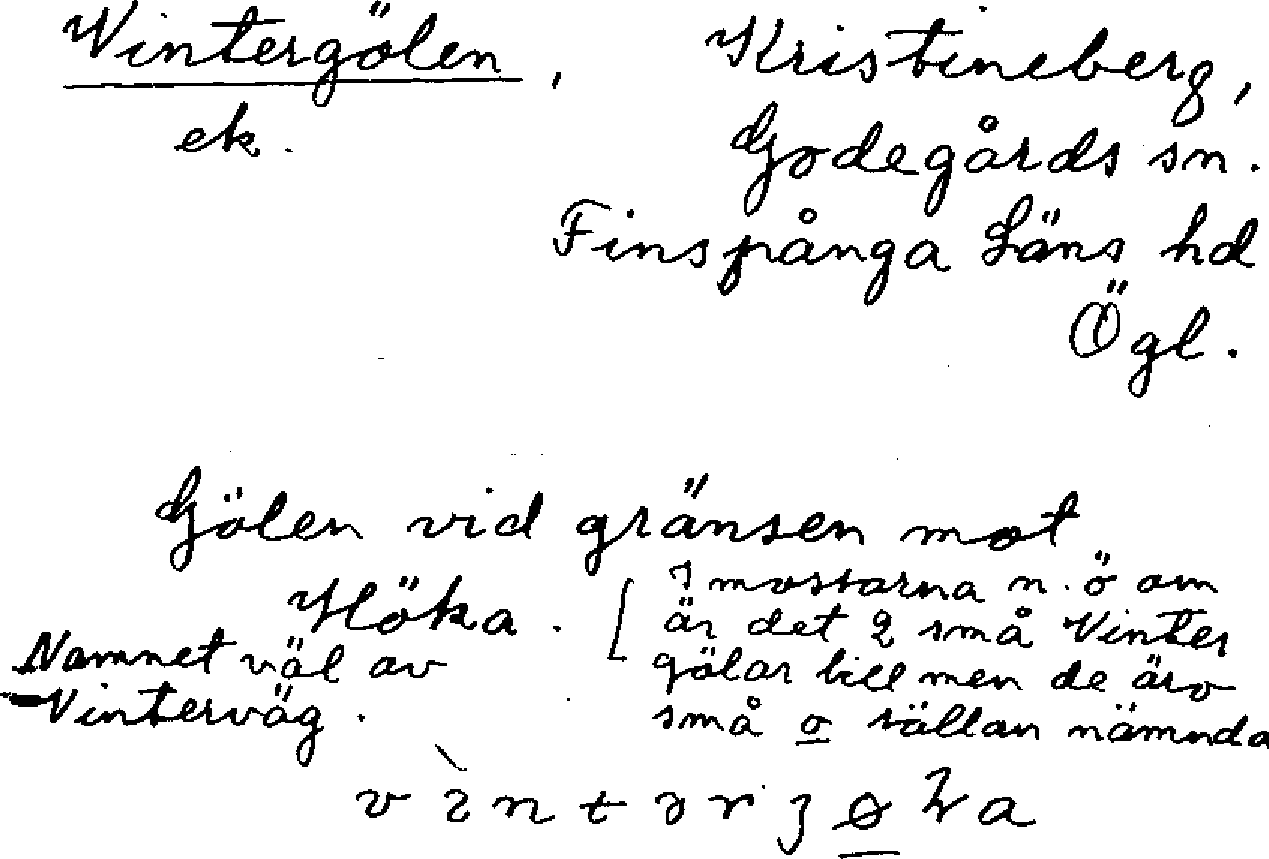 Wintergölen, Kristineberg,
ek. Godegårds sn.
Finspånga Läns hd
Ögl.
Gölen vid gränsen mot
Höka.
Namnet väl av
Vinterväg.
[I mossarna n. ö om
är det 2 små Vinter
gölar till men de äro
små o sällan nämnda